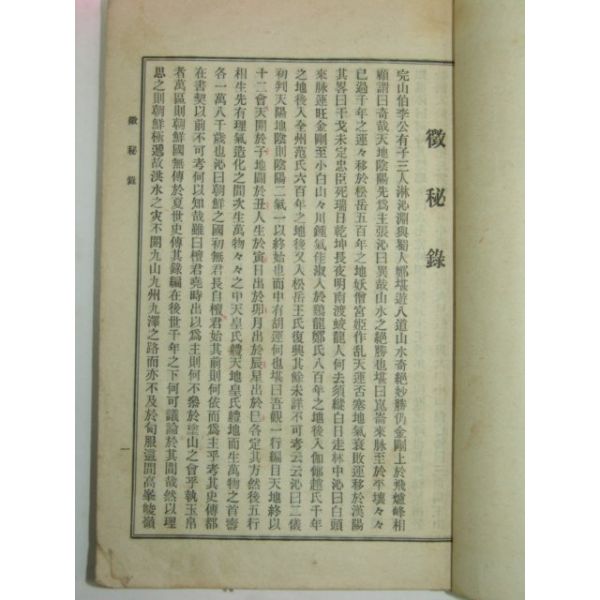 徵秘錄
完山伯李公有子三人淋沁淵與蜀人鄭堪遊八道山水奇絕妙勝仍金剛上於飛爐峰相
顧謂曰奇哉天地陰陽先爲主張沁曰異哉山水之絕勝也堪曰崑崙來脉至於平壤々々
已過千年之運々移於松岳五百年之地妖僧宮姬作乱天運否塞地氣衰敗運移於漢陽
其畧曰干戈未定忠臣死瑞日乾坤長夜明南渡蛟龍人何去須縱白日走林中沁曰白頭
來脉運旺金剛至小白山々川鍾氣佳淑入於鷄龍鄭氏八百年之地後入伽倻趙氏千年
之地後入全州范氏六百年之地後又入松岳王氏復興其餘未詳不可考云云沁曰二儀
初判天陽地陰則陰陽二氣一以終始也而中有胡運何也堪曰吾觀一行編目天地終以
十二會天開於子地闢於丑人生於寅日出於卯月出於辰星出於巳各定其方然後五行
相生先有理氣造化之間次生萬物々々之中天皇氏體天地皇氏體地而生萬物之首壽
各一萬八千歲也沁曰朝鮮之國初無君長自檀君始其前則何依而爲主乎考其史傳都
在書契以前不可考何以知哉雖曰檀君堯時出以爲主則何不叅於塗山之會乎執玉帛
者萬區則朝鮮國無傳於夏世史傳其錄編在後世千年之下何可議論於其間哉然以理
思之則朝鮮極遐故洪水之灾不關九山九州九澤之路而亦不及於甸服這間高峯峻嶺
徵秘錄
一